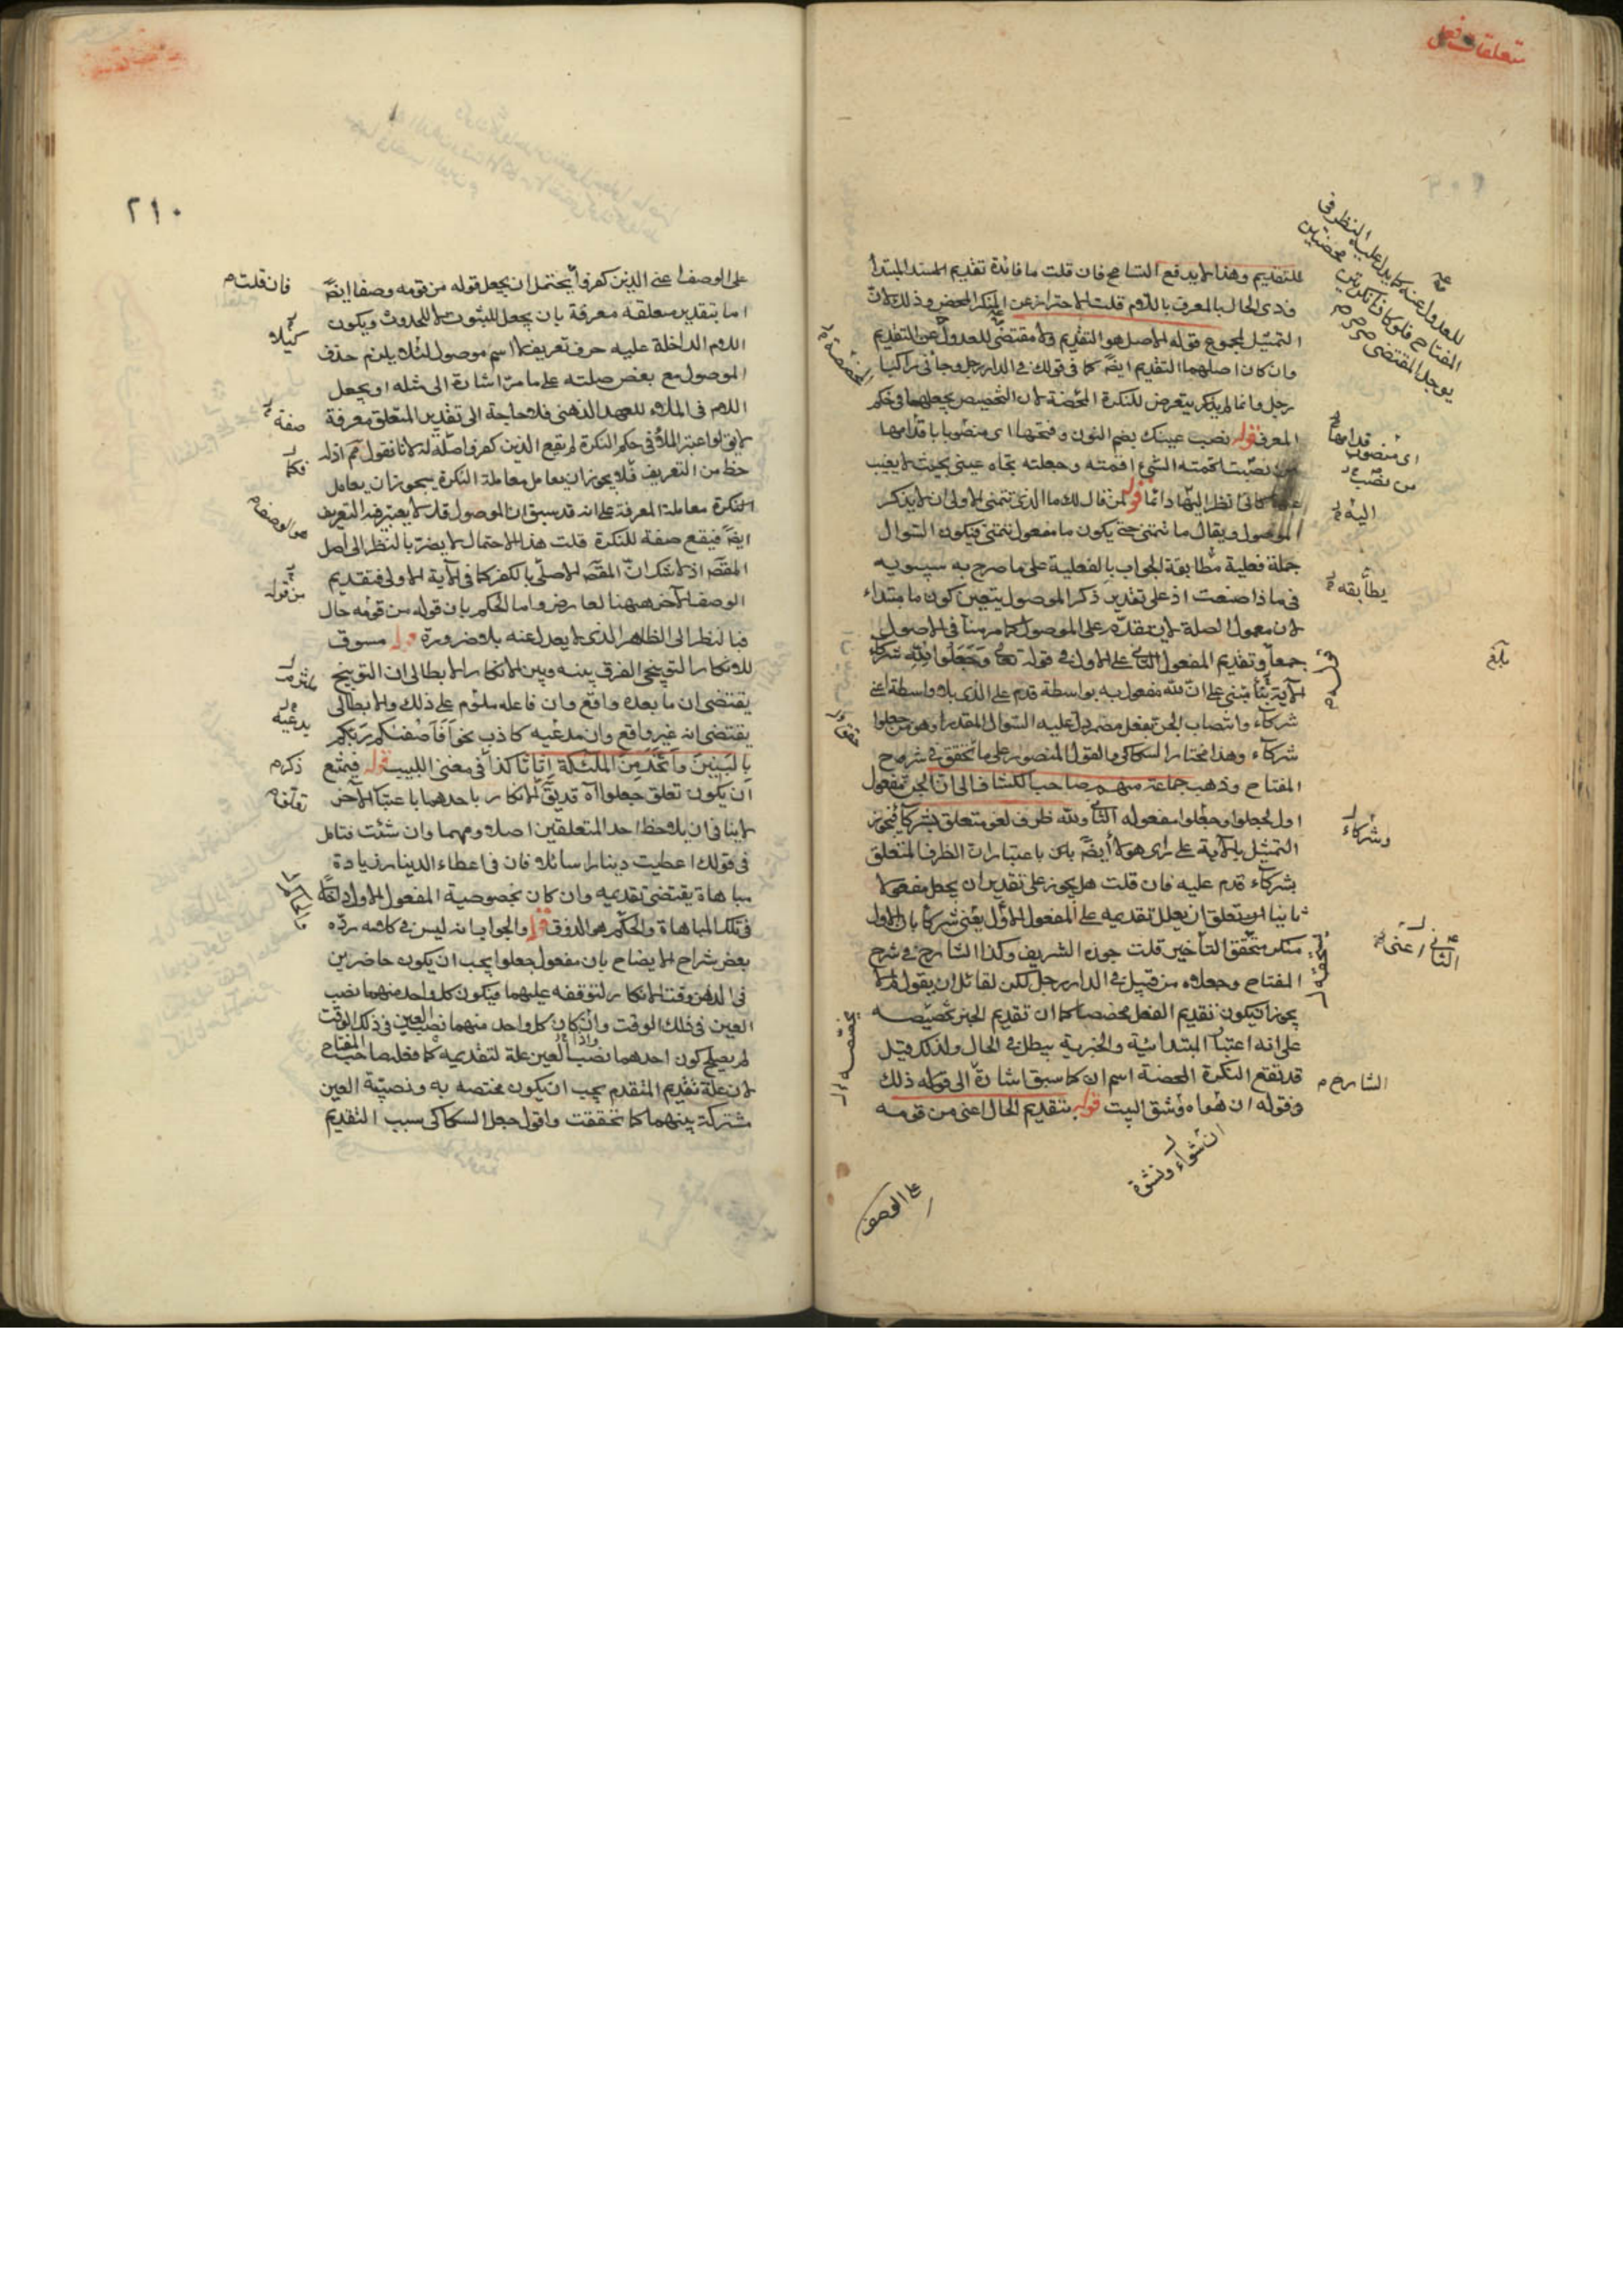 متعلقات فعل
للتقديم وهذا لا يدفع التسامح فان قلت ما فائدة تقديم المسند المبتدأ
وذى الحال بالمعرف باللام قلت الاحتراز عن المنكر المحض وذلك لان
التمثيل لمجموع قوله الاصل هو التقديم ولا مقتضى للعدول عن التقديم
وان كان اصلهما التقديم ايضا كما فى قولك فى الدار رجل وجاءنى راكبا
رجل وانما لم يذكر يتعرض للنكرة المخصصة لان التخصيص يجعلها فى حكم
المعرف قوله نصب عينك بضم النون وفتحها اى منصوبا باقدامها
من نصبت اقمته الشئ اقمته وجعلته تجاه عينى بحيث لا يغيب
كانى انظر اليها دائما قوله لمن قال لك ما الذى تتمنى الاولى ان لا يذكر
الموصول ويقال ما تتمنى حتى يكون ما مفعول تتمنى فيكون السؤال
جملة فعلية مطابقة الجواب بالفعلية على ما صرح به سيبويه
فى ماذا صنعت اذ على تقدير ذكر الموصول يتعين كون ما مبتداء
لان معمول الصلة لا يتقدم على الموصول كما مر منا فى الاصول
جمعا وتقديم المفعول الثانى على الاول فى قوله تعالى وجعلوا لله شركاء
الآية مبنى على ان لله مفعول به بواسطة قدم على الذى بلا واسطة اعنى
شركاء وانتصاب الجن بفعل مضمر دل عليه السؤال المقدر وهو من جعلوا
شركاء وهذا مختار السكاكى والقول المنصور على ما تحقق فى شروح
المفتاح وذهب جماعة منهم صاحب الكشاف الى ان الجن مفعول
اول لجعلوا وجعلوا مفعوله الثانى ولله ظرف لغو متعلق بشركاء فيجوز
التمثيل بالآية على راى هولاء ايضا لكن باعتبار ان الظرف المتعلق
بشركاء قدم عليه فان قلت هل يجوز على تقدير ان يجعل مفعولا
ثانيا ان يعلل تقديمه على المفعول الاول يعنى شركاء بان الاول
منكر متحقق التأخير قلت جوزه الشريف وكذا الشارح فى شرح
المفتاح وجعلاه من قبيل فى الدار رجل لكن لقائل ان يقول لم لا
يجوز ان يكون تقديم الفعل مخصصا كما ان تقديم الخبر تخصيصه
على انه اعتبار الابتدائية والخبرية يبطل فى الحال ولذلك قيل
قد تقع النكرة المحضة اسم ان كما سبق اشارة الى قوله ذلك
وقوله ان شواء ونشق البيت قوله بتقديم الحال اعنى من قومه
ان شواء ونشوة
على الوصف
للعدول عنه كما يدل عليه النظر فى
المفتاح فلو كانا نكرتين محضتين
يوجد المقتضى
قدامها
اى منصوب
من نصبت
اليه
يطابقه
بلغ
وشركاء
الثانى اعنى
الشارح
٢١٠
على الوصف اعنى الذين كفروا يحتمل ان يجعل قوله من قومه وصفا ايضا
اما بتقدير متعلقه معرفة بان يجعل للثبوت لا للحدوث ويكون
اللام الداخلة عليه حرف تعريف لا اسم موصول لئلا يلزم حذف
الموصول مع بعض صلته على ما مر اشارة الى مثله او يجعل
اللام فى الملاء للعهد الذهنى فلا حاجة الى تقدير المتعلق معرفة
لا يق لو اعتبر الملأ فى حكم النكرة لم يقع الذين كفروا صلة له لانا نقول ثم اذ له
حظ من التعريف فلا يجوز ان يعامل معاملة النكرة يجوز ان يعامل
النكرة معاملة المعرفة على انه قد سبق ان الموصول قد لا يعتبر فيه التعريف
ايضا فيقع صفة للنكرة قلت هذا الاحتمال لا يضر بالنظر الى اصل
المقصد اذ لا شك ان المقصد الاصلى بالكفر كما فى الآية الاولى فتقديم
الوصف الآخر ههنا لعارض واما الحكم بان قوله من قومه حال
فبالنظر الى الظاهر الذى لا يعدل عنه بلا ضرورة قوله مسوق
للانكار التوبيخى الفرق بينه وبين الانكار الابطالى ان التوبيخ
يقتضى ان ما بعده واقع وان فاعله ملوم على ذلك والابطالى
يقتضى انه غير واقع وان مدعيه كاذب نحو أفأصفكم ربكم
بالبنين واتخذ من الملئكة اناثا كذا فى مغنى اللبيب قوله فيمتنع
ان يكون تعلق جعلوا اه قد يق الانكار باحدهما باعتبار الآخر
لا ينافى ان يلاحظ احد المتعلقين اصلا ومهما وان شئت فتامل
فى قولك اعطيت دينارا سائلا فان فى اعطاء الدينار زيادة
مباهاة يقتضى تقديمه وان كان بخصوصية المفعول الاول دخل
فى تلك المباهاة والحكم هو الذوق قوله والجواب انه ليس فى كلامه رده
بعض شراح الايضاح بان مفعول جعلوا يجب ان يكون حاضرين
فى الذهن وقت الانكار لتوقفه عليهما فيكون كل واحد منهما نصب
العين فى ذلك الوقت واذا كان كل واحد منهما نصب العين فى ذلك الوقت
لم يصلح كون احدهما نصب العين علة لتقديمه كما فعله صاحب المفتاح
لان علة تقديم المتقدم يجب ان يكون مختصه به ونصبية العين
مشتركة بينهما كما تحققت واقول جعل السكاكى سبب التقديم
فان قلت
كيلا
صفة
فكما
هو الوصف
من قوله
يدعيه
ذكره
تعلقه